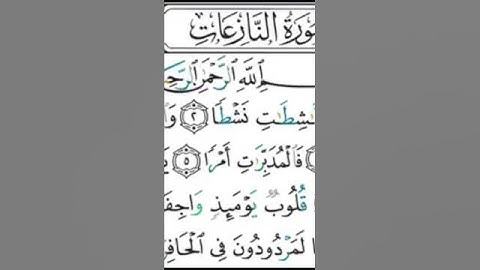 ورَةُ النَّازِعَاتِ
ٱللَّهِ ٱلرَّحْمَٰنِ ٱلرَّحِ
شِطَٰتِ نَشْطًا ٢ وَٱ
فَٱلْمُدَبِّرَٰتِ أَمْرًا ٥ يَ
قُلُوبٌ يَوْمَئِذٍ وَاجِفَ
ا لَمَرْدُودُونَ فِي ٱلْحَافِ